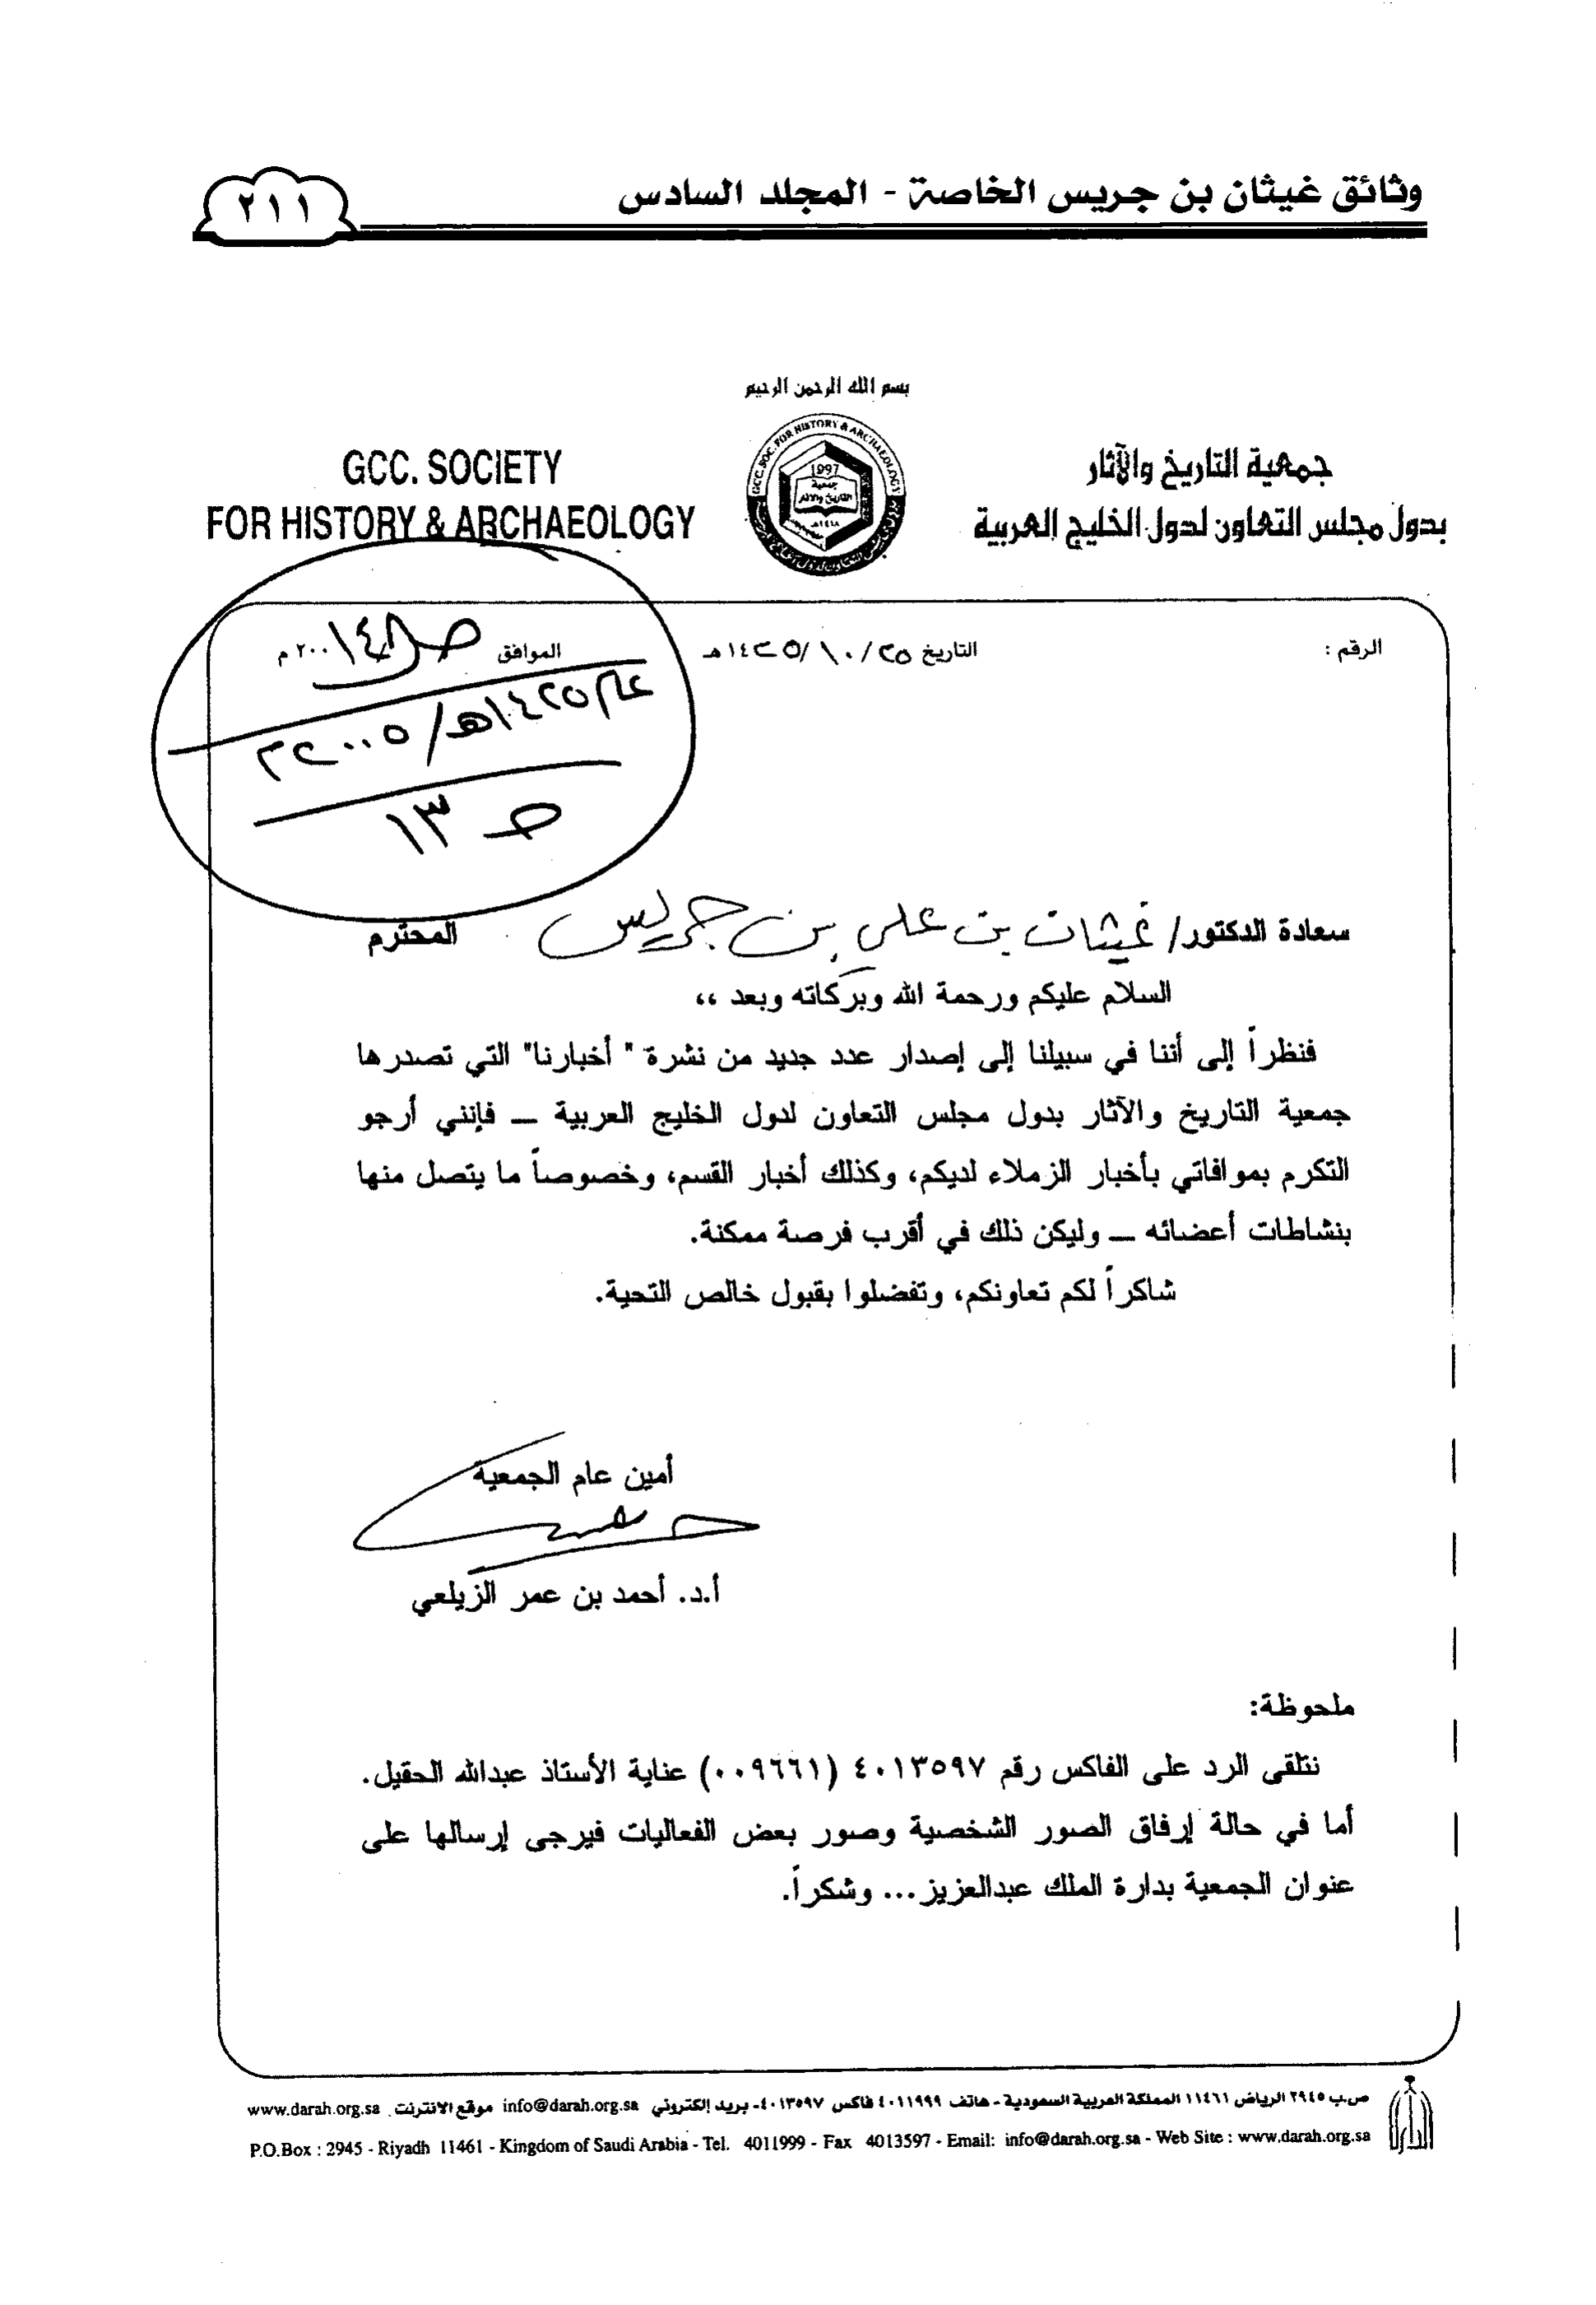 وثائق غيثان بن جريس الخاصة - المجلد السادس
٢١١
بسم الله الرحمن الرحيم
جمعية التاريخ والآثار
بدول مجلس التعاون لدول الخليج العربية
GCC. SOCIETY
FOR HISTORY & ARCHAEOLOGY
GCC. SOC. FOR HISTORY & ARCHAEOLOGY
1997
جمعية
التاريخ والآثار
١٤١٨هـ
الرقم :
التاريخ ٢٥/ ١٠/ ١٤٢٥هـ
الموافق ٢٠٠ م
عام ١٤٢٥هـ/ ٢٠٠٥م
ص ١٣
سعادة الدكتور/ غيثان بن علي بن جريس المحترم
السلام عليكم ورحمة الله وبركاته وبعد ،،
فنظراً إلى أننا في سبيلنا إلى إصدار عدد جديد من نشرة " أخبارنا" التي تصدرها
جمعية التاريخ والآثار بدول مجلس التعاون لدول الخليج العربية – فإنني أرجو
التكرم بموافاتي بأخبار الزملاء لديكم، وكذلك أخبار القسم، وخصوصاً ما يتصل منها
بنشاطات أعضائه – وليكن ذلك في أقرب فرصة ممكنة.
شاكراً لكم تعاونكم، وتفضلوا بقبول خالص التحية.
أمين عام الجمعية
أ.د. أحمد بن عمر الزيلعي
ملحوظة:
نتلقى الرد على الفاكس رقم ٤٠١٣٥٩٧ (٠٠٩٦٦١) عناية الأستاذ عبدالله الحقيل.
أما في حالة إرفاق الصور الشخصية وصور بعض الفعاليات فيرجى إرسالها على
عنوان الجمعية بدارة الملك عبدالعزيز... وشكراً.
ص.ب ٢٩٤٥ الرياض ١١٤٦١ المملكة العربية السعودية - هاتف ٤٠١١٩٩٩ فاكس ٤٠١٣٥٩٧- بريد إلكتروني info@darah.org.sa موقع الانترنت www.darah.org.sa
P.O.Box : 2945 - Riyadh 11461 - Kingdom of Saudi Arabia - Tel. 4011999 - Fax 4013597 - Email: info@darah.org.sa - Web Site : www.darah.org.sa